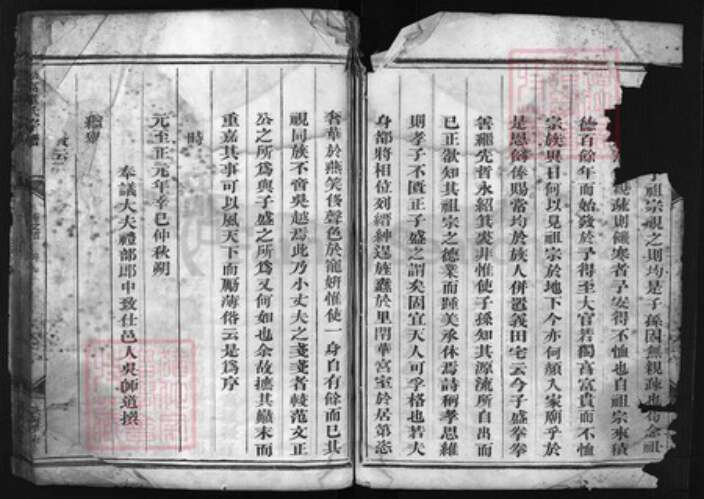 子祖宗視之則均是子孫固無親疎也苟念祖
親疎則饑寒者予安得不恤也自祖宗來積
德百餘年而始發於予得至大官若獨享富貴而不恤
宗族異日何以見祖宗於地下今亦何顏入家廟乎於
是恩俗俸賜常均於族人併置義田宅云今子盛拳拳
善繼先哲永紹箕裘非惟使子孫知其源流所自出而
已正欲知其祖宗之德業而踵美承休焉詩稱孝思維
則孝子不匱正子盛之謂矣固宜天人可孚格也若夫
身都將相位列縉紳迳旌纛於里閈華宮室於居第恣
奢華於燕笑侈聲色於寵妍惟使一身自有餘而已其
視同族不啻吳越焉此乃小丈夫之戔戔者較范文正
公之所為與子盛之所為又何如也余故摭其顛末而
重嘉其事可以風天下而勵薄俗云是為序
時
元至正元年辛巳仲秋朔
奉議大夫禮部郎中致仕邑人吳師道撰